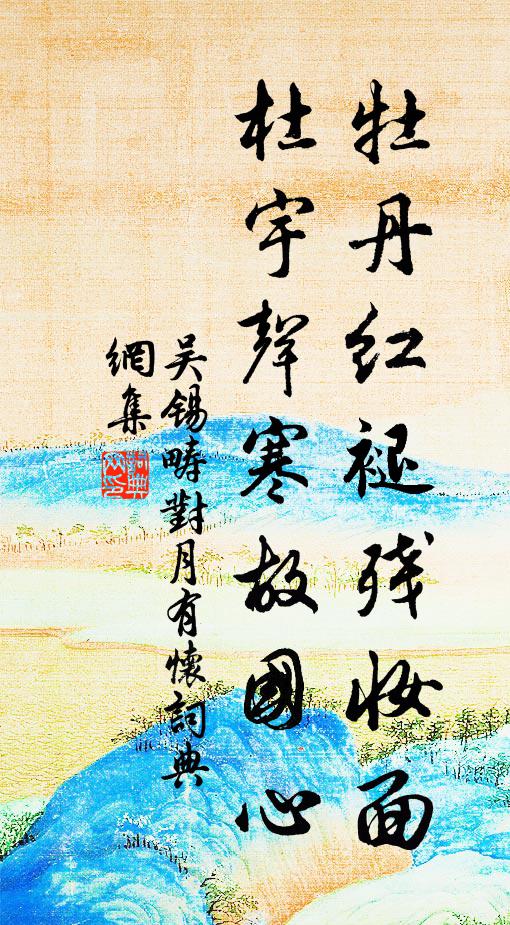 牡丹红褪残妆面
杜宇聲寒故國心
吴锡畴對月有懷詞典
網集
詞典